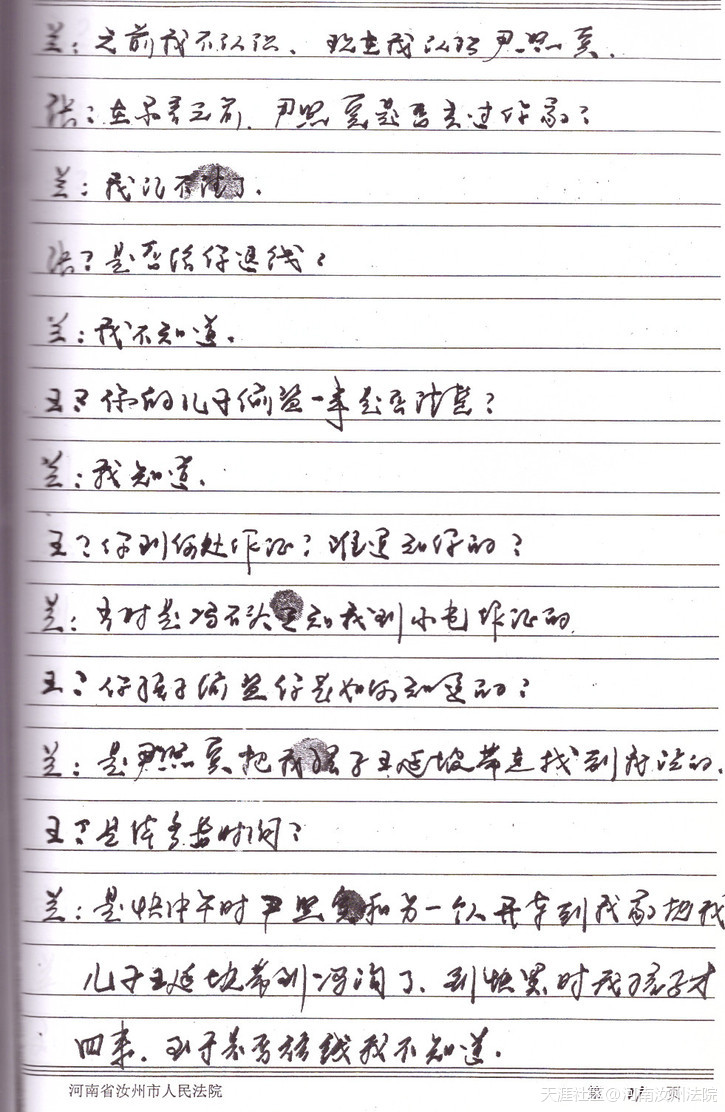 兰：之前我不认识、现在我认识尹照真．
张？在录音之前，尹照真是否去过你家？
兰：我记不清了．
张？是否给你退钱？
兰：我不知道．
王？你的儿子偷盗一事是否清楚？
兰：我知道．
王？你到何处作证？谁通知你的？
兰：当时是冯石头通知我到小屯作证的．
王？你孩子偷盗你是如何知道的？
兰：是尹照真把我孩子王延坡带走找到我说的．
王？是什么时间？
兰：是快中午时尹照真和另一个人开车到我家把我
儿子王延坡带到冯沟了、到快黑时我孩子才
回来．至于是否给钱我不知道．
河南省汝州市人民法院
第 页
天涯社区@河南汝州法院